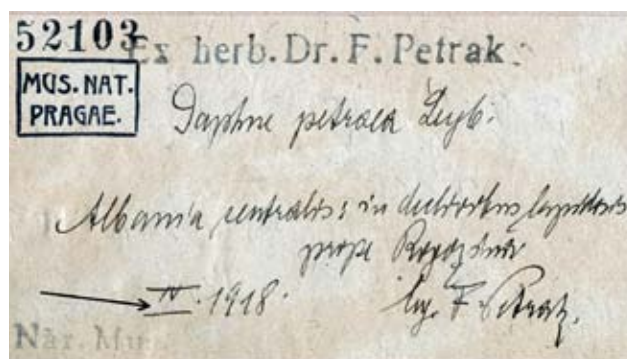 52103
Ex herb. Dr. F. Petrak.
MUS. NAT.
PRAGAE.
Daphne petraea Leyb.
Albania centralis: in declivibus lapidosis
prope Rogozina
IV. 1918. leg. F. Petrak.
Nár. Mus